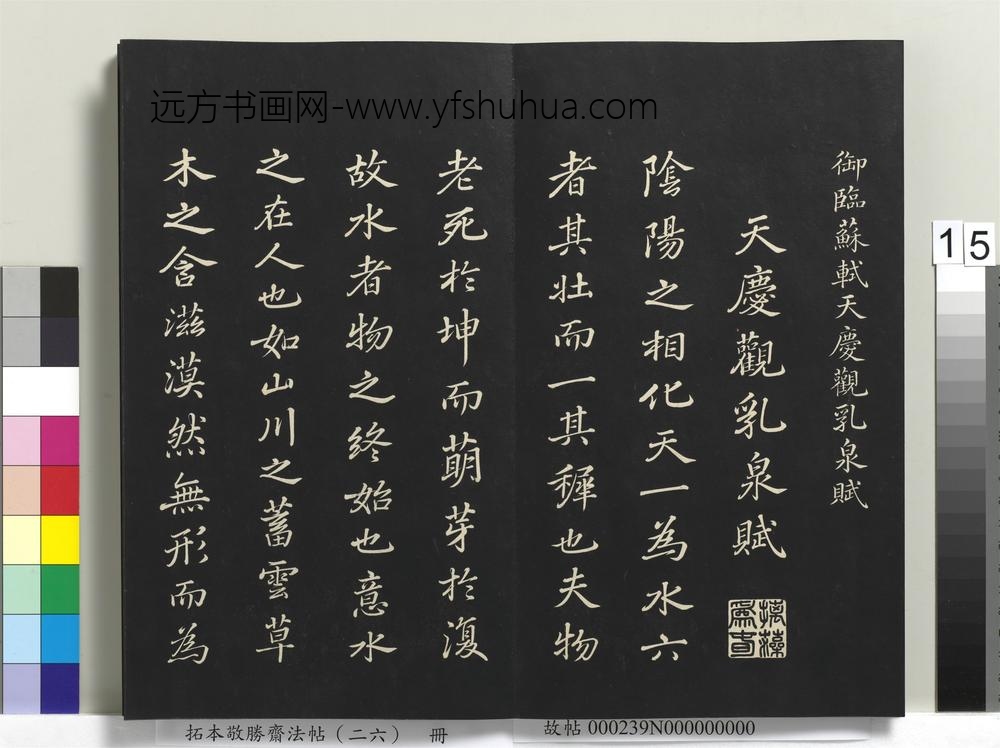 远方书画网-www.yfshuhua.com
御臨蘇軾天慶觀乳泉賦
天慶觀乳泉賦
陰陽之相化天一為水六
者其壯而一其穉也夫物
老死於坤而萌芽於復
故水者物之終始也意水
之在人也如山川之蓄雲草
木之含滋漠然無形而為
15
拓本敬勝齋法帖(二六) 冊
故帖 000239N000000000